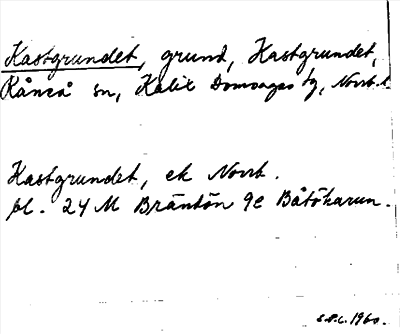 Hastgrundet, grund, Hastgrundet,
Råneå sn, Kalix Domsagas tg, Norrb. l.
Hastgrundet, ek Norrb.
bl. 24 M Bräntön 9e Båtöharun.
1960.